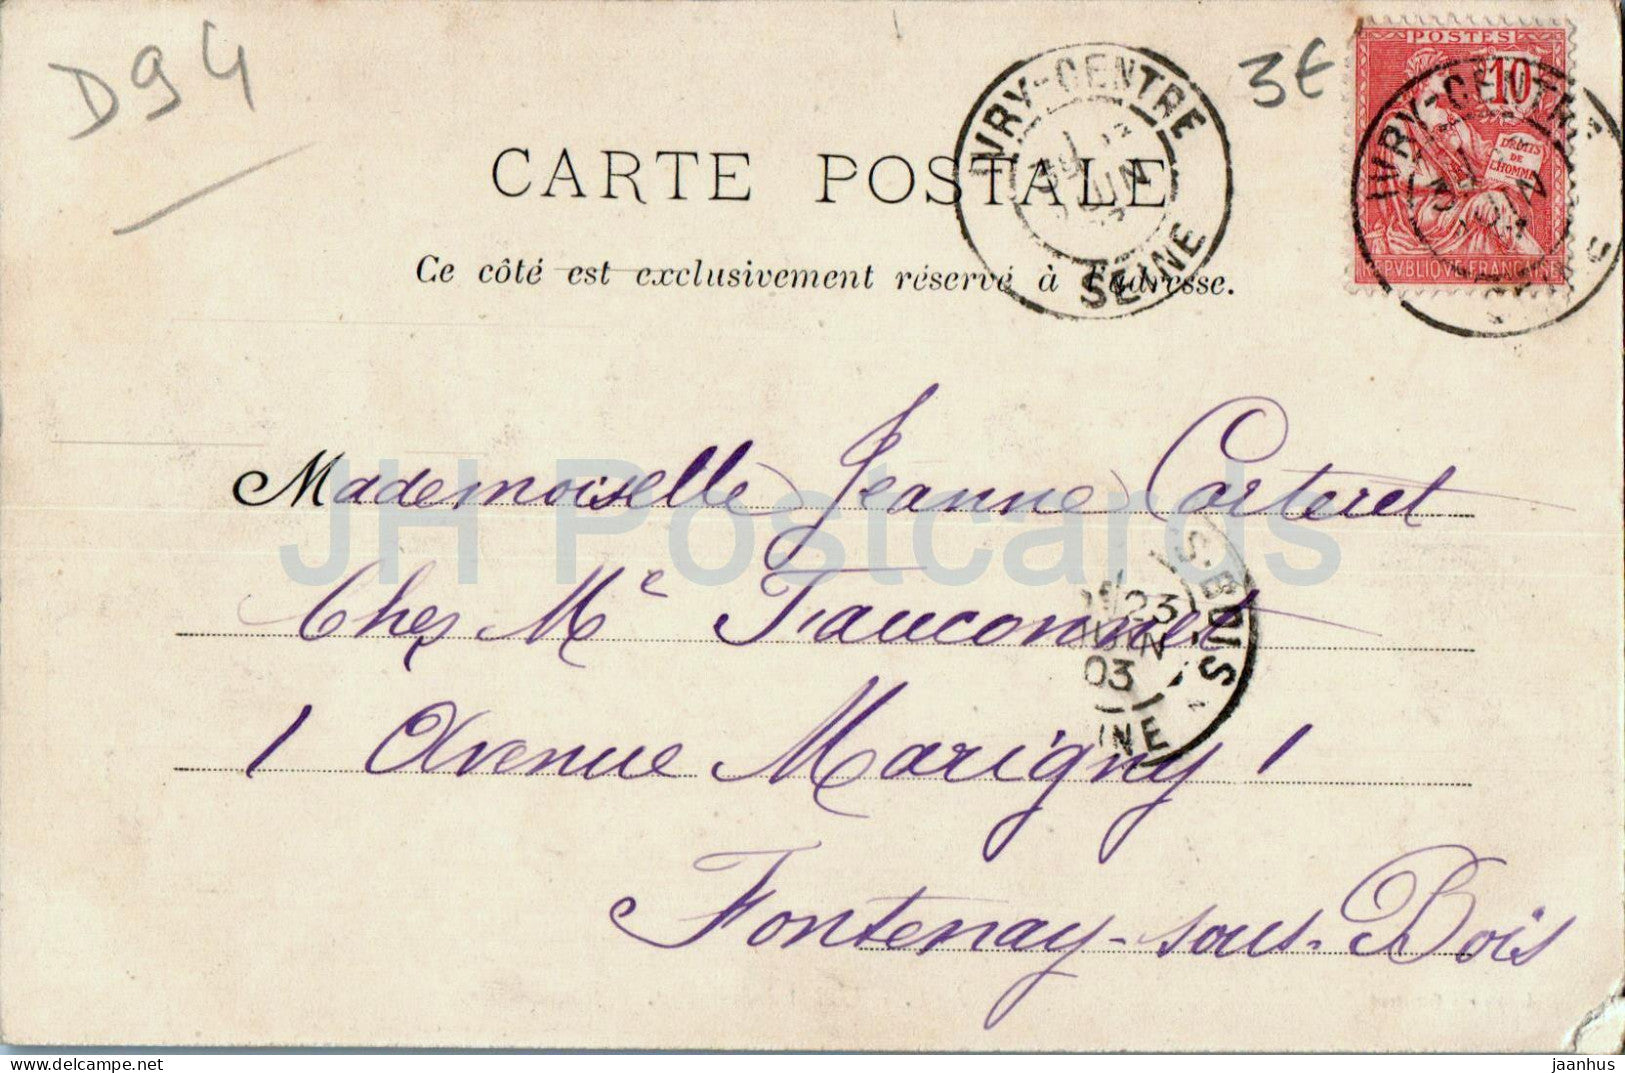 D94
3€
POSTES
10
DROITS
DE
L'HOMME
REPVBLIQVE FRANÇAISE
IVRY-CENTRE
JUIN
SEINE
IVRY-CENTRE
JUIN
CARTE POSTALE
Ce côté est exclusivement réservé à l'adresse.
Mademoiselle Jeanne Carteret
Chez Mᵉ Fauconnet
1 Avenue Marigny 1
Fontenay-sous-Bois
S-BOIS
23
JUIN
03
INE
JH Postcards
jaanhus